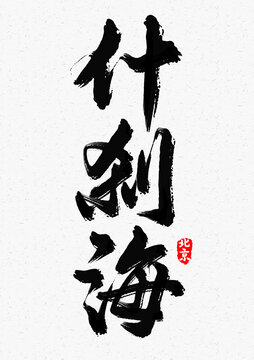 什刹海
北京